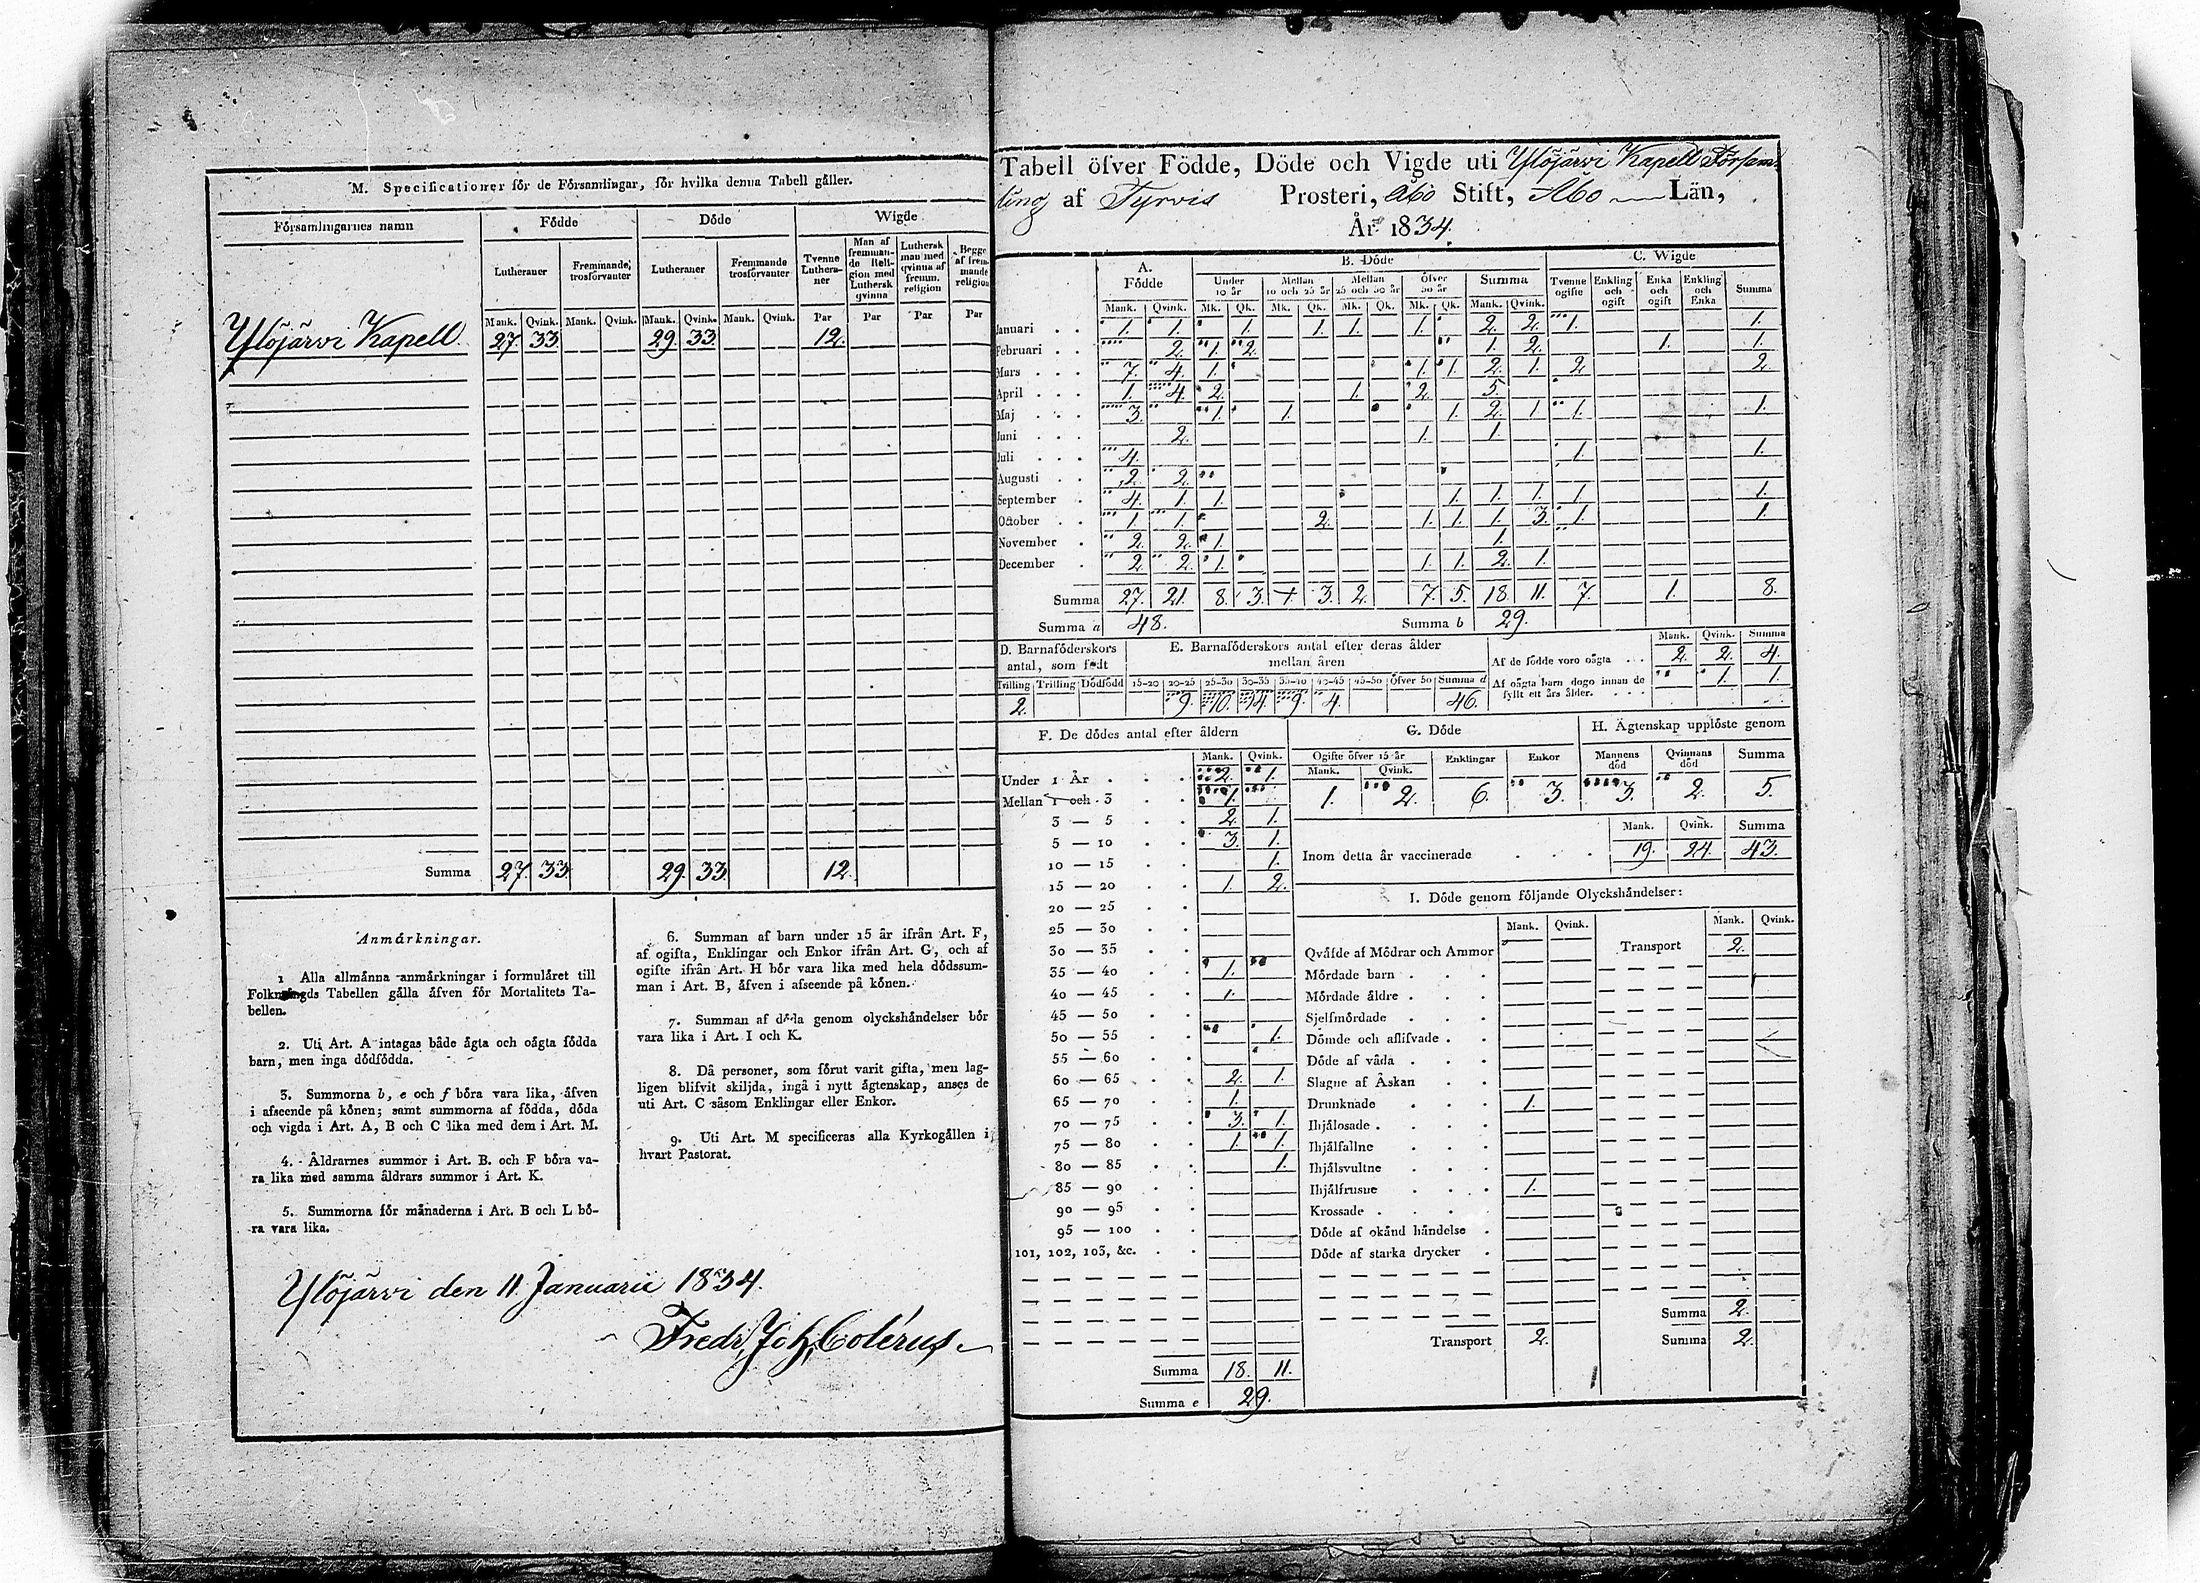 M. Specificationer för de Församlingar, för hvilka denna Tabell gäller.
Församlingarnes namn Födde Döde Wigde
Lutheraner Fremmande trosförvanter Lutheraner Fremmande trosförvanter Tvenne Lutheraner Man af fremmande Religion med Luthersk qvinna Luthersk man med qvinna af fremm. religion Begge af fremmande religion
Mank. Qvink. Mank. Qvink. Mank. Qvink. Mank. Qvink. Par Par Par Par
Ylöjärvi Kapell 27 33 29. 33 12.
Summa 27. 33 29. 33 12.
Anmärkningar.
1 Alla allmänna anmärkningar i formuläret till
Folkmängds Tabellen gälla äfven för Mortalitets Ta-
bellen.
2. Uti Art. A intagas både ägta och oägta födda
barn, men inga dödfödda.
3. Summorna b, e och f böra vara lika, äfven
i afseende på könen; samt summorna af födda, döda
och vigda i Art. A, B och C lika med dem i Art. M.
4. Åldrarnes summor i Art. B. och F böra va-
ra lika med samma åldrars summor i Art. K.
5. Summorna för månaderna i Art. B och L bö-
ra vara lika.
6. Summan af barn under 15 år ifrån Art. F,
af ogifta, Enklingar och Enkor ifrån Art. G, och af
ogifte ifrån Art. H bör vara lika med hela dödssum-
man i Art. B, äfven i afseende på könen.
7. Summan af döda genom olyckshändelser bör
vara lika i Art. I och K.
8. Då personer, som förut varit gifta, men lag-
ligen blifvit skiljda, ingå i nytt ägtenskap, anses de
uti Art. C såsom Enklingar eller Enkor.
9. Uti Art. M specificeras alla Kyrkogällen i
hvart Pastorat.
Ylöjärvi den 11 Januarii 1834.
Fredr. Joh. Colérus
Tabell öfver Födde, Döde och Vigde uti Ylöjärvi Kapell Försam
ling af Tyrvis Prosteri, Åbo Stift, Åbo Län,
År 1834.
A. Födde B. Döde C. Wigde
Under 10 år Mellan 10 och 25 år Mellan 25 och 50 år Öfver 50 år Summa Tvenne ogifte Enkling och ogift Enka och ogift Enkling och Enka Summa
Mank. Qvink. Mk. Qk. Mk. Qk. Mk. Qk. Mk. Qk. Mank. Qvink.
Januari 1. 1. 1. 1. 1. 1. 2. 2. 1. 1.
Februari 2. 1. 2. 1. 2. 1. 1.
Mars 7. 4. 1. 1. 1. 2. 1. 2 2
April 1. 4. 2. 1. 2. 5.
Maj 3. 1. 1. 1. 2. 1 1. 1.
Juni 2. 1. 1.
Juli 4. 1. 1.
Augusti 2 2.
September 4. 1. 1. 1. 1. 1. 1. 1.
October 1. 1. 2. 1. 1. 1. 3. 1. 1.
November 2. 2. 1. 1.
December 2 2. 1. 1. 1. 2. 1.
Summa 27. 21. 8. 3. 1. 3. 2. 7. 5. 18. 11. 7. 1. 8.
Summa a 48. Summa b 29.
D. Barnaföderskors antal, som födt
Tvilling Trilling Dödfödd
2.
E. Barnaföderskors antal efter deras ålder
mellan åren
15-20 20-25 25-30 30-35 35-40 40-45 45-50 Öfver 50 Summa d
9. 10. 14. 9. 4. 46.
Mank. Qvink. Summa
Af de födde voro oägta 2. 2. 4.
Af oägta barn dogo innan de
fyllt ett års ålder. 1. 1.
F. De dödes antal efter åldern
Mank. Qvink.
Under 1 År 2. 1.
Mellan 1 och 3 1.
3 — 5 2. 1.
5 — 10 3. 1.
10 — 15 1.
15 — 20 1. 2.
20 — 25
25 — 30
30 — 35
35 — 40 1.
40 — 45 1.
45 — 50
50 — 55 1.
55 — 60
60 — 65 2. 1.
65 — 70 1.
70 — 75 3. 1.
75 — 80 1. 1.
80 — 85 1.
85 — 90
90 — 95
95 — 100
101, 102, 103, &c.
Summa 18. 11.
Summa e 29.
G. Döde
Ogifte öfver 15 år Enklingar Enkor
Mank. Qvink.
1. 2. 6. 3.
H. Ägtenskap upplöste genom
Mannens död Qvinnans död Summa
3. 2. 5.
Mank. Qvink. Summa
Inom detta år vaccinerade 19. 24. 43.
I. Döde genom följande Olyckshändelser:
Mank. Qvink. Mank. Qvink.
Qväfde af Mödrar och Ammor Transport 2.
Mördade barn
Mördade äldre
Sjelfmördade
Dömde och aflifvade
Döde af våda
Slagne af Åskan
Drunknade 1.
Ihjälosade
Ihjälfallne
Ihjälsvultne
Ihjälfrusne 1.
Krossade
Döde af okänd händelse
Döde af starka drycker
Summa 2.
Transport 2. Summa 2.